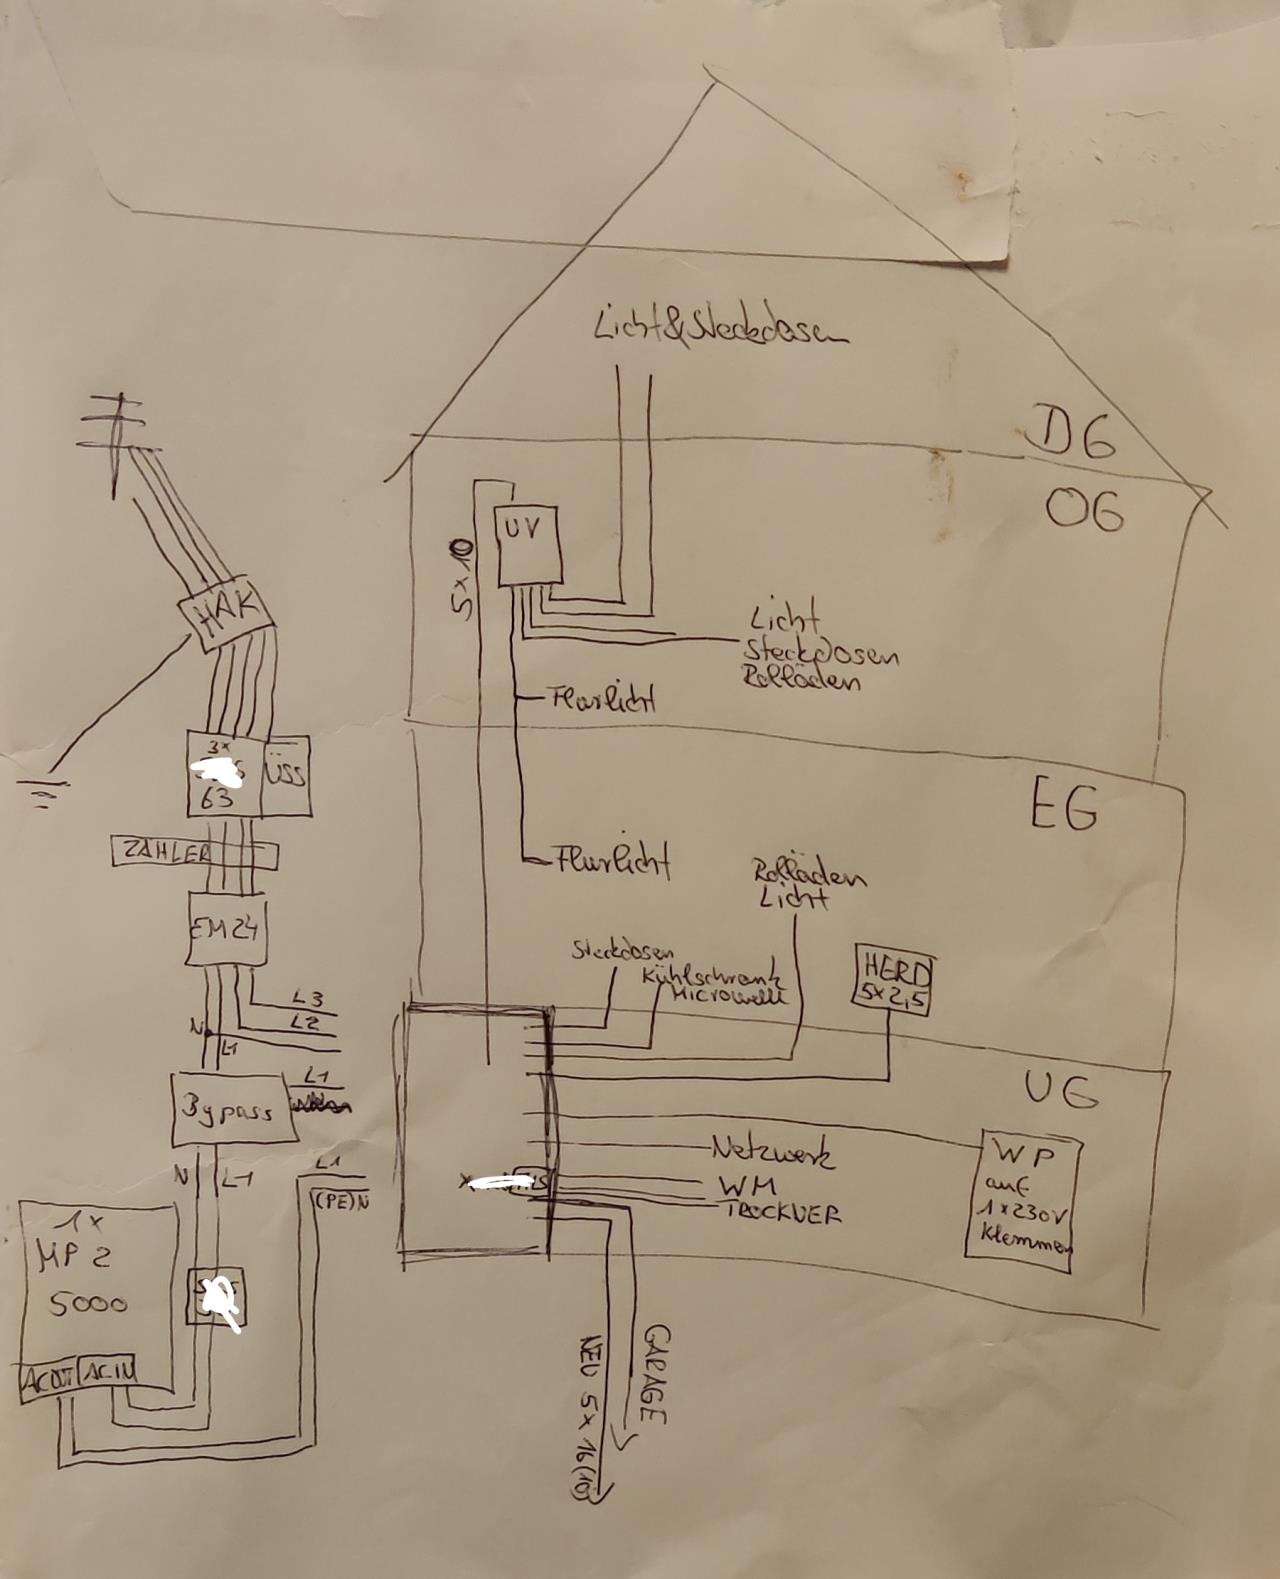 Licht&Steckdosen
DG
OG
UV
5x10
HAK
Licht
Steckdosen
Rolläden
Flurlicht
3x
63
ÜSS
EG
ZÄHLER
Flurlicht
Rolläden
Licht
EM24
Steckdosen
Kühlschrank
Microwelle
HERD
5x2,5
L3
L2
N
L1
L1
UG
Bypass
Netzwerk
WP
auf
1x230V
Klemmen
N
L1
L1
(PE)N
WM
TROCKNER
1x
MP2
5000
ACOUT
ACIN
GARAGE
NEU 5x16(10)